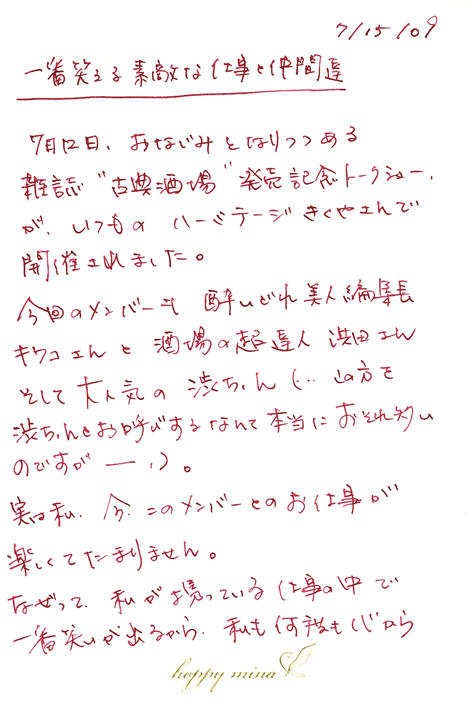 7/15/09
一番笑える素敵な仕事と仲間達
7月12日、おなじみとなりつつある
雑誌"古典酒場"発売記念トークショー、
が、いつもの ハーミテージきくやさんで
開催されました。
今回のメンバーも 酔いどれ美人編集長
キワコさんと 酒場の超達人 浜田さん
そして大人気の 渋ちゃん (… この方を
渋ちゃんとお呼びするなんて本当におそれ多い
のですが ー ;)。
実は私、今、このメンバーとのお仕事が
楽しくてたまりません。
なぜって、私が携っている仕事の中で
一番笑いが出るから、私も何度も心から
hoppy mina